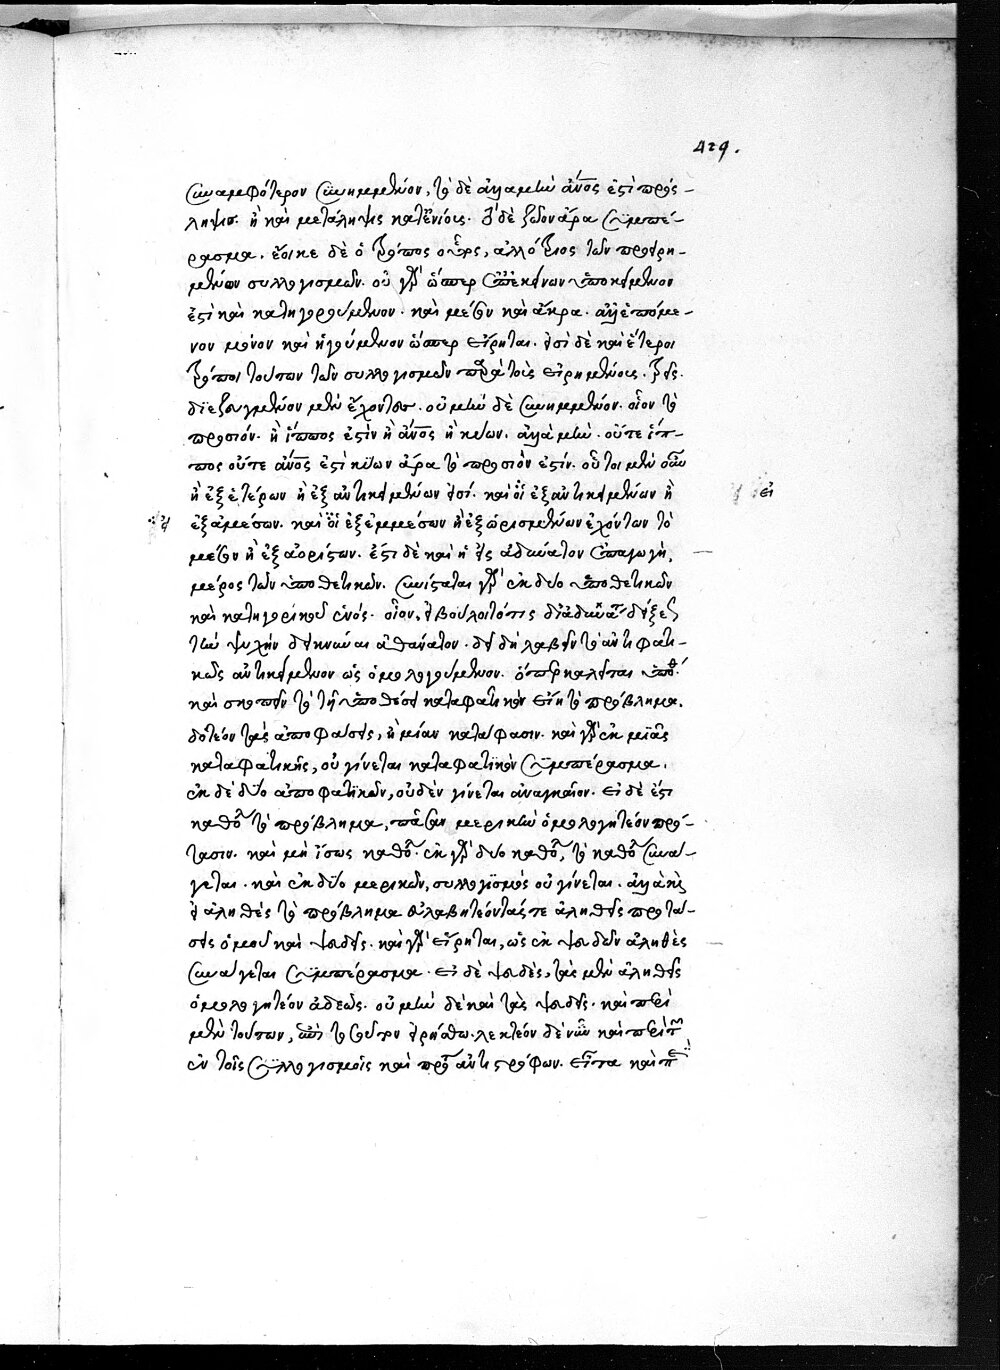 429.
συναμφότερον συνημμένον, τὸ δὲ ἀλλα μὴν ἄνος ἐστὶ πρόσ-
ληψισ. ἢ καὶ μετάληψις κατ' ἐνίους. τὸ δὲ ζῶον ἄρα συμπέ-
ρασμα. ἔοικε δὲ ὁ τρόπος οὗτος, ἀλλότριος τῶν προειρη-
μένων συλλογισμῶν. οὐ γὰρ ὥσπερ ἐπ' ἐκείνων ὑποκείμενον
ἐστὶ καὶ κατηγορούμενον. καὶ μέσον καὶ ἄκρα. ἀλλ' ἑπόμε-
νον μόνον καὶ ἡγούμενον ὥσπερ εἴρηται. εἰσὶ δὲ καὶ ἕτεροι
τρόποι τούτων τῶν συλλογισμῶν παρὰ τοὺς εἰρημένους.
διεζευγμένον μὲν ἔχοντες. οὐ μὴν δὲ συνημμένον. οἷον τὸ
προσιόν. ἢ ἵππος ἐστὶν ἢ ἄνος ἢ κύων. ἀλλὰ μὴν. οὔτε ἵπ-
πος οὔτε ἄνος ἐστὶ κύων ἄρα τὸ προσιόν ἐστίν. οὗτοι μὲν οὖν
ἢ ἐξ ἑτέρων ἢ ἐξ ἀντικειμένων εἰσί. καὶ οἱ ἐξ ἀντικειμένων ἢ
ἐξ ἀμέσων. καὶ οἱ ἐξ ἐμμέσων ἢ ἐξ ὡρισμένων ἐχόντων τὸ
μέσον ἢ ἐξ ἀορίστων. ἔστι δὲ καὶ ἡ εἰς ἀδύνατον ἀπαγωγὴ,
μέρος τῶν ὑποθετικῶν. συνίσταται γὰρ ἐκ δύο ὑποθετικῶν
καὶ κατηγορικοῦ ἑνός. οἷον, εἰ βούλοιτό τις δεῖξαι
τὴν ψυχὴν δεικνύναι ἀθάνατον. δεῖ δὴ λαβεῖν τὸ ἀντιφατι-
κῶς ἀντικείμενον ὡς ὁμολογούμενον. ὅπερ καλεῖται ὑπόθ.
καὶ σκοπεῖν τὸ τῇ ὑποθέσει καταφατικὸν εἴη τὸ πρόβλημα.
δοτέον τὰς ἀποφάσεις, ἢ μίαν κατάφασιν. καὶ γὰρ ἐκ μιᾶς
καταφατικῆς, οὐ γίνεται καταφατικὸν συμπέρασμα.
ἐκ δὲ δύο ἀποφατικῶν, οὐδὲν γίνεται ἀναγκαῖον. εἰ δὲ ἐστὶ
καθόλου τὸ πρόβλημα, πᾶσαν μερικὴν ὁμολογητέον πρό-
τασιν. καὶ μὴ ἴσως καθόλου. ἐκ γὰρ δύο καθόλου, τὸ καθόλου συνά-
γεται. καὶ ἐκ δύο μερικῶν, συλλογισμὸς οὐ γίνεται. ἀλλὰ κἂν
εἰ ἀληθὲς τὸ πρόβλημα εὐλαβητέον τάς τε ἀληθεῖς προτά-
σεις ὁμοῦ καὶ ψευδεῖς. καὶ γὰρ εἴρηται, ὡς ἐκ ψευδῶν ἀληθὲς
συνάγεται συμπέρασμα. εἰ δὲ ψευδὲς, τὰς μὲν ἀληθεῖς
ὁμολογητέον ἀδεῶς. οὐ μὴν δὲ καὶ τὰς ψευδεῖς. καὶ περὶ
μὲν τούτων, ἐπὶ τοσοῦτον εἰρήσθω. λεκτέον δὲ νῦν καὶ περὶ τῶν
ἐν τοῖς συλλογισμοῖς καὶ προτ ἀντιστρόφων. εἶτα καὶ π